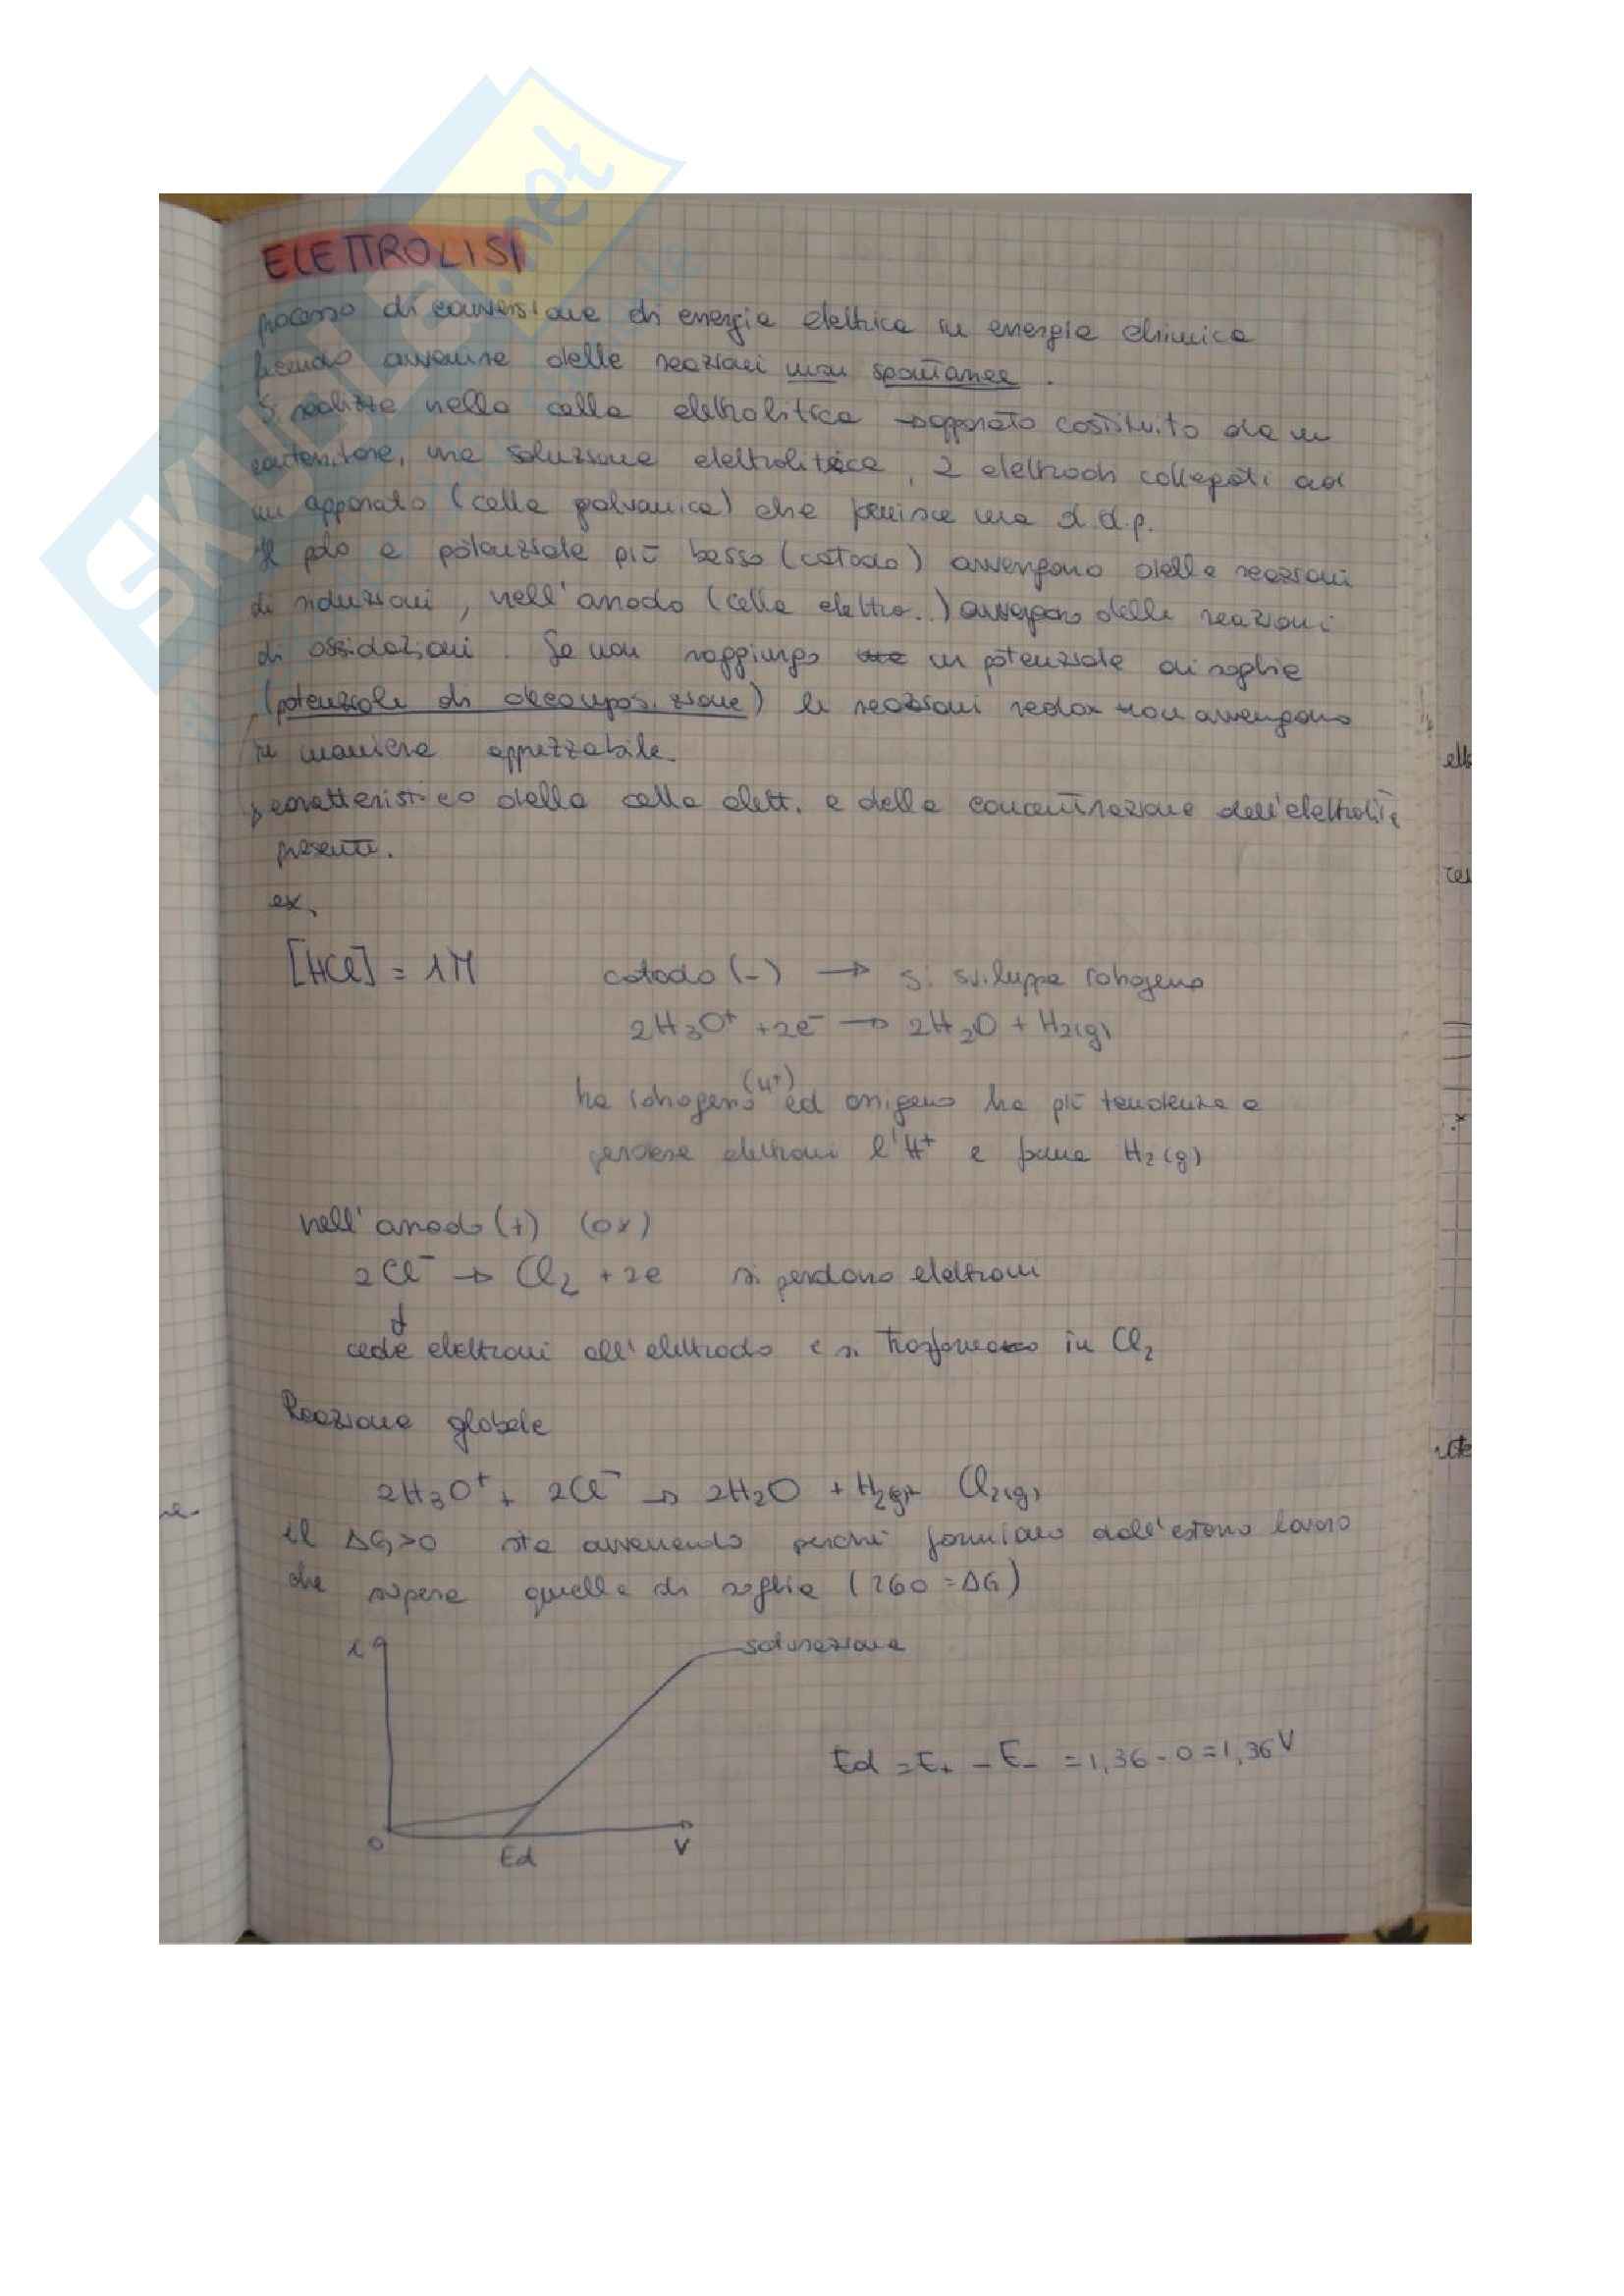 SKUOLA.net
ELETTROLISI
processo di conversione di energia elettrica in energia chimica
facendo avvenire delle reazioni non spontanee.
Si realizza nella cella elettrolitica → apparato costituito da un
contenitore, una soluzione elettrolitica, 2 elettrodi collegati ad
un apparato (cella galvanica) che fornisce una d.d.p.
Il polo a potenziale più basso (catodo) avvengono delle reazioni
di riduzioni, nell'anodo (cella elettro..) avvengono delle reazioni
di ossidazioni. Se non raggiungo un potenziale di soglia
(potenziale di decomposizione) le reazioni redox non avvengono
in maniera apprezzabile.
caratteristico della cella elett. e della concentrazione dell'elettrolita
presente.
ex.
[HCl] = 1M catodo (-) → si sviluppa idrogeno
2H3O+ + 2e- → 2H2O + H2(g)
tra idrogeno (H+) ed ossigeno ha più tendenza a
perdere elettroni l'H+ e forma H2(g)
nell'anodo (+) (ox)
2Cl- → Cl2 + 2e si perdono elettroni
↓
cede elettroni all'elettrodo e si in Cl2
Reazione globale
2H3O+ + 2Cl- → 2H2O + H2(g)+ Cl2(g)
il ΔG>0 sta avvenendo perché forniamo dall'esterno lavoro
che supera quella di soglia (260 = ΔG)
i saturazione
Ed = E+ - E- = 1,36 - 0 = 1,36 V
0 Ed V